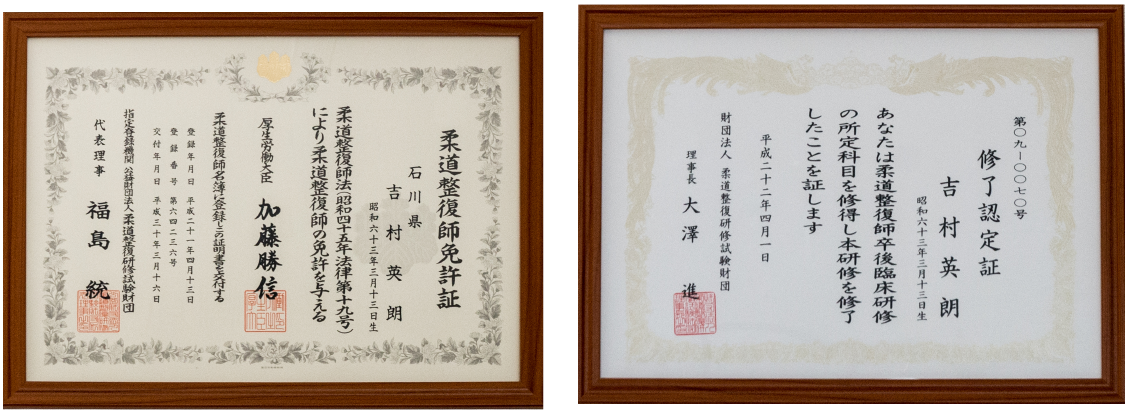 柔道整復師免許証
石川県
吉村英朗
昭和六十三年三月十三日生
柔道整復師法(昭和四十五年法律第十九号)
により柔道整復師の免許を与える
厚生労働大臣 加藤勝信
柔道整復師名簿に登録しこの証明書を交付する
登録年月日 平成二十一年四月十三日
登録番号 第六四二三六号
交付年月日 平成三十年三月十六日
指定登録機関 公益財団法人柔道整復研修試験財団
代表理事 福島統
第〇九-〇〇七〇号
修了認定証
吉村英朗
昭和六十三年三月十三日生
あなたは柔道整復師卒後臨床研修
の所定科目を修得し本研修を修了
したことを証します
平成二十二年四月一日
財団法人 柔道整復研修試験財団
理事長 大澤進